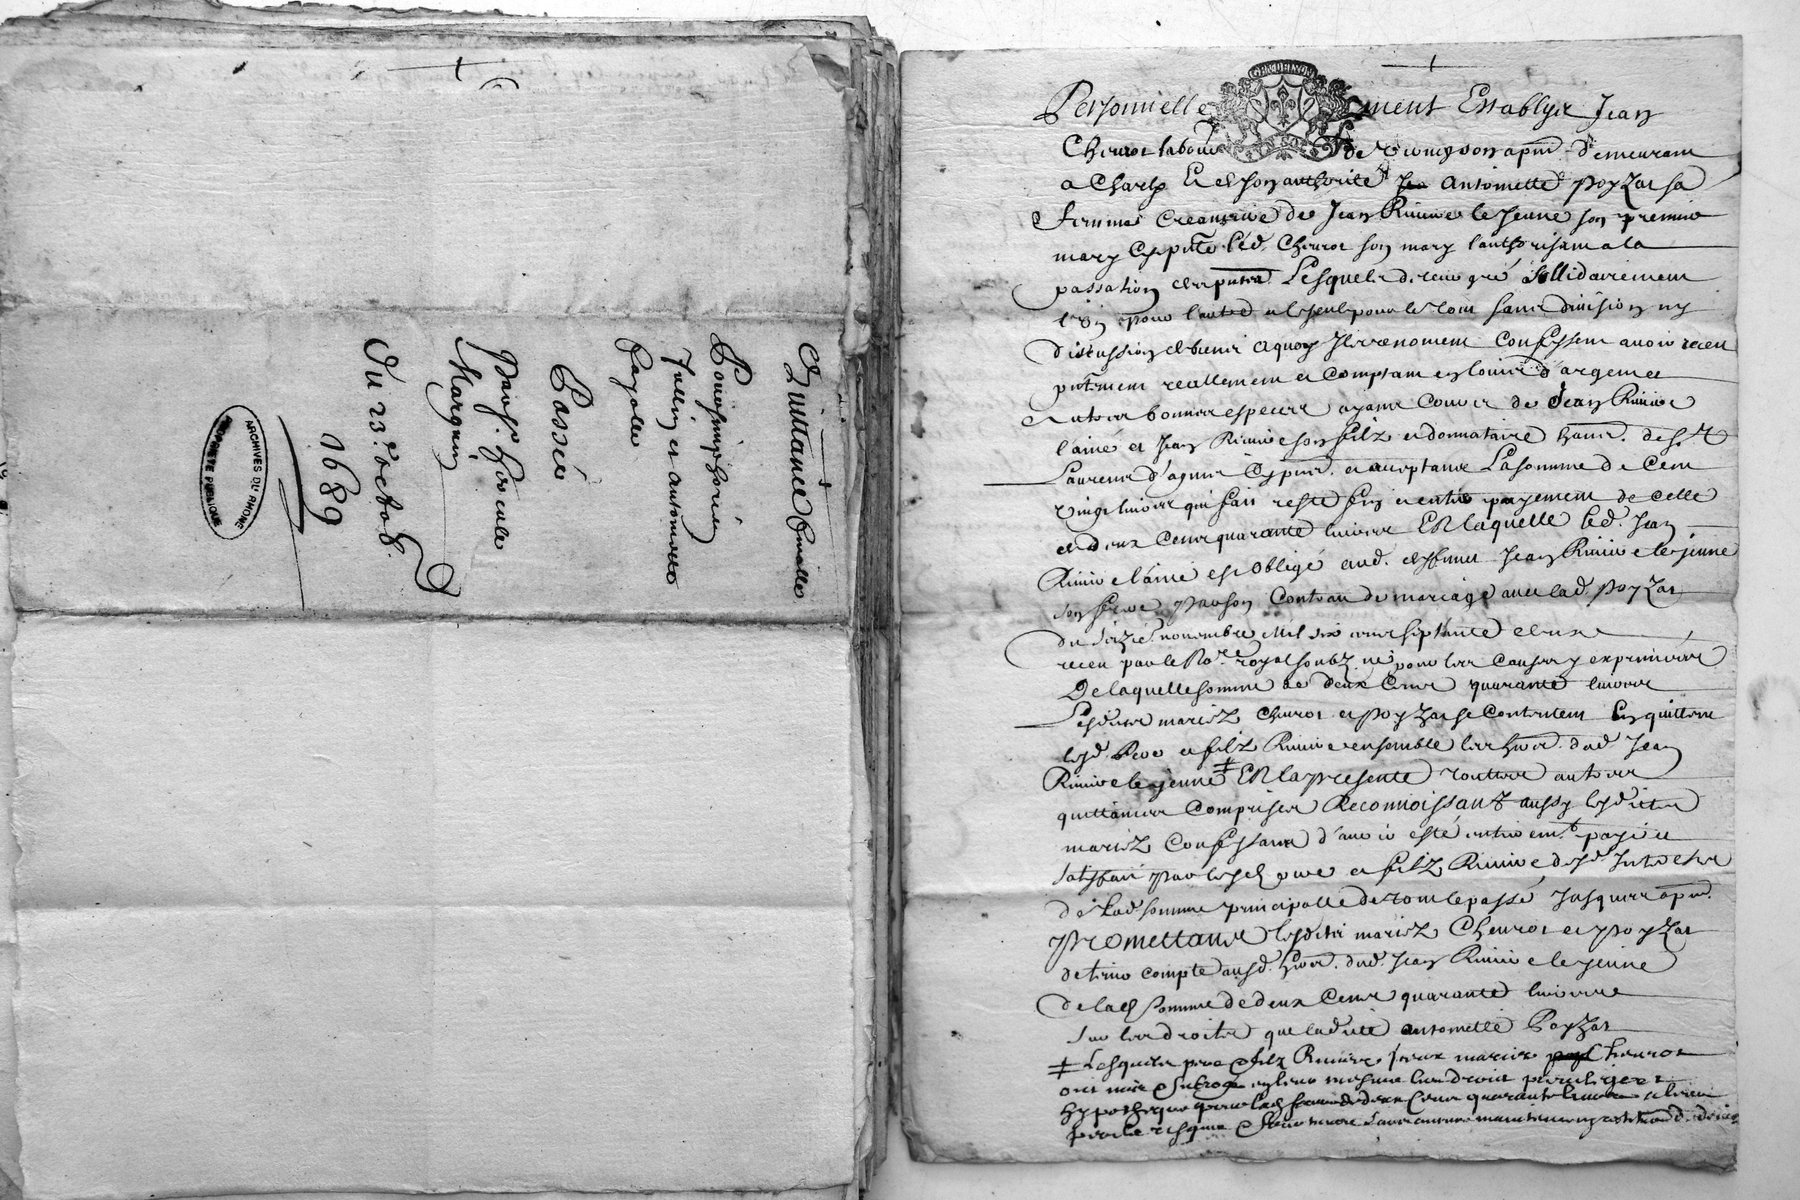 Quittance
Pour simphorien
Jullin et Antoinette
Payolle
Passée
Par Sr. 
Marquin
Du 23e octob.
1689
ARCHIVES DU RHONE
PROPRIÉTÉ PUBLIQUE
GEN DE LYON
Personnelle ment Establys Jean
Cheurot labour de apnt demeurant
a Charly Et de son authorité Antoinette Poyzat sa
femme Creanciere de Jean Riuiere le Jeune son premier
mary Cy pnte led. Cheurot son mary l'authorisant a la
passation des pntes Lesquels de leur gré sollidairement
l'un pour l'autre et le seul pour le tout sans diuision ny
discussion de biens a quoy Ils renoncent Confessent auoir receu
pntement reallement et Comptant en louis d'argent et
autres bonnes especes ayant Cours de Jean Riuiere
l'ainé et Jean Riuiere son filz et donnataire hans. de St
Laurent d'agnis Cy pnts. et acceptans La somme de Cent
vingt liures qui fait reste fin et entier payement de Celle
de deux Cens quarante liures En laquelle led. Jean
Riuiere l'ainé est obligé aud. deffunct Jean Riuiere le jeune
son frere par son Contrau de mariage auec lad. Poyzat
du seizie. nouembre Mil six cens septante deux
receu par le No.re royal soubz.né pour les Causes y exprimées
De laquelle somme de deux Cens quarante liures
Lesdits mariez Cheurot et Poyzat se Contentent En quittent
lesd. Pere et filz Riuiere ensemble les hoirs dud. Jean
Riuiere le jeune ‡ En la presente touttes autres
quittances Comprises Reconnoissant aussy lesdits
mariez Confessans d'auoir esté entierem.t payé et
satisfait par lesd. pere et filz Riuiere desd. Interestz
de Lad. somme principalle de tout le passé Jusques a pnt.
Promettans lesdits mariez Cheurot et Poyzat
de tenir compte ausd. hoirs. dud. Jean Riuiere le jeune
de lad. somme de deux Cens quarante liures
sur les droits que ladite antoinette Poyzat
‡ Lesquels pere et filz Riuiere mariez Cheurot
ont mis et subrogé en leur mesme lieu droit priuileges et
hypotheque pour lad. somme de deux Cens quarante liures a leurs
perils risques et fortunes